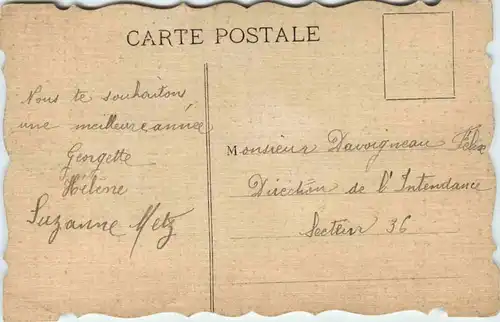 CARTE POSTALE
Nous te souhaitons
une meilleure année
Georgette
Hélène
Suzanne Metz
Monsieur Davoigneau Félix
Direction de l'Intendance
Secteur 36